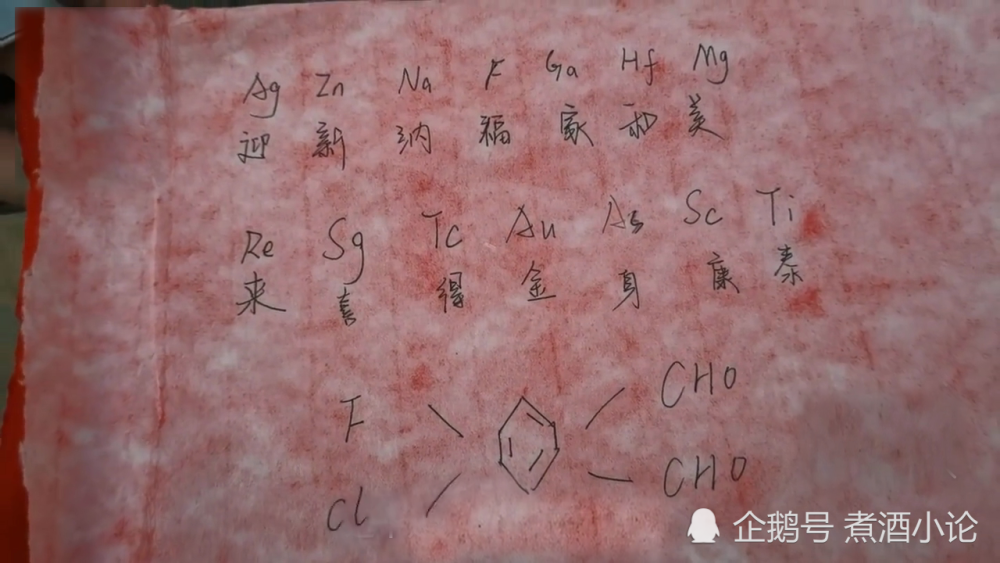 Ag Zn Na F Ga Hf Mg
迎 新 纳 福 家 和 美
Re Sg Tc Au As Sc Ti
来 喜 得 金 身 康 泰
F CHO
Cl CHO
企鹅号 煮酒小论